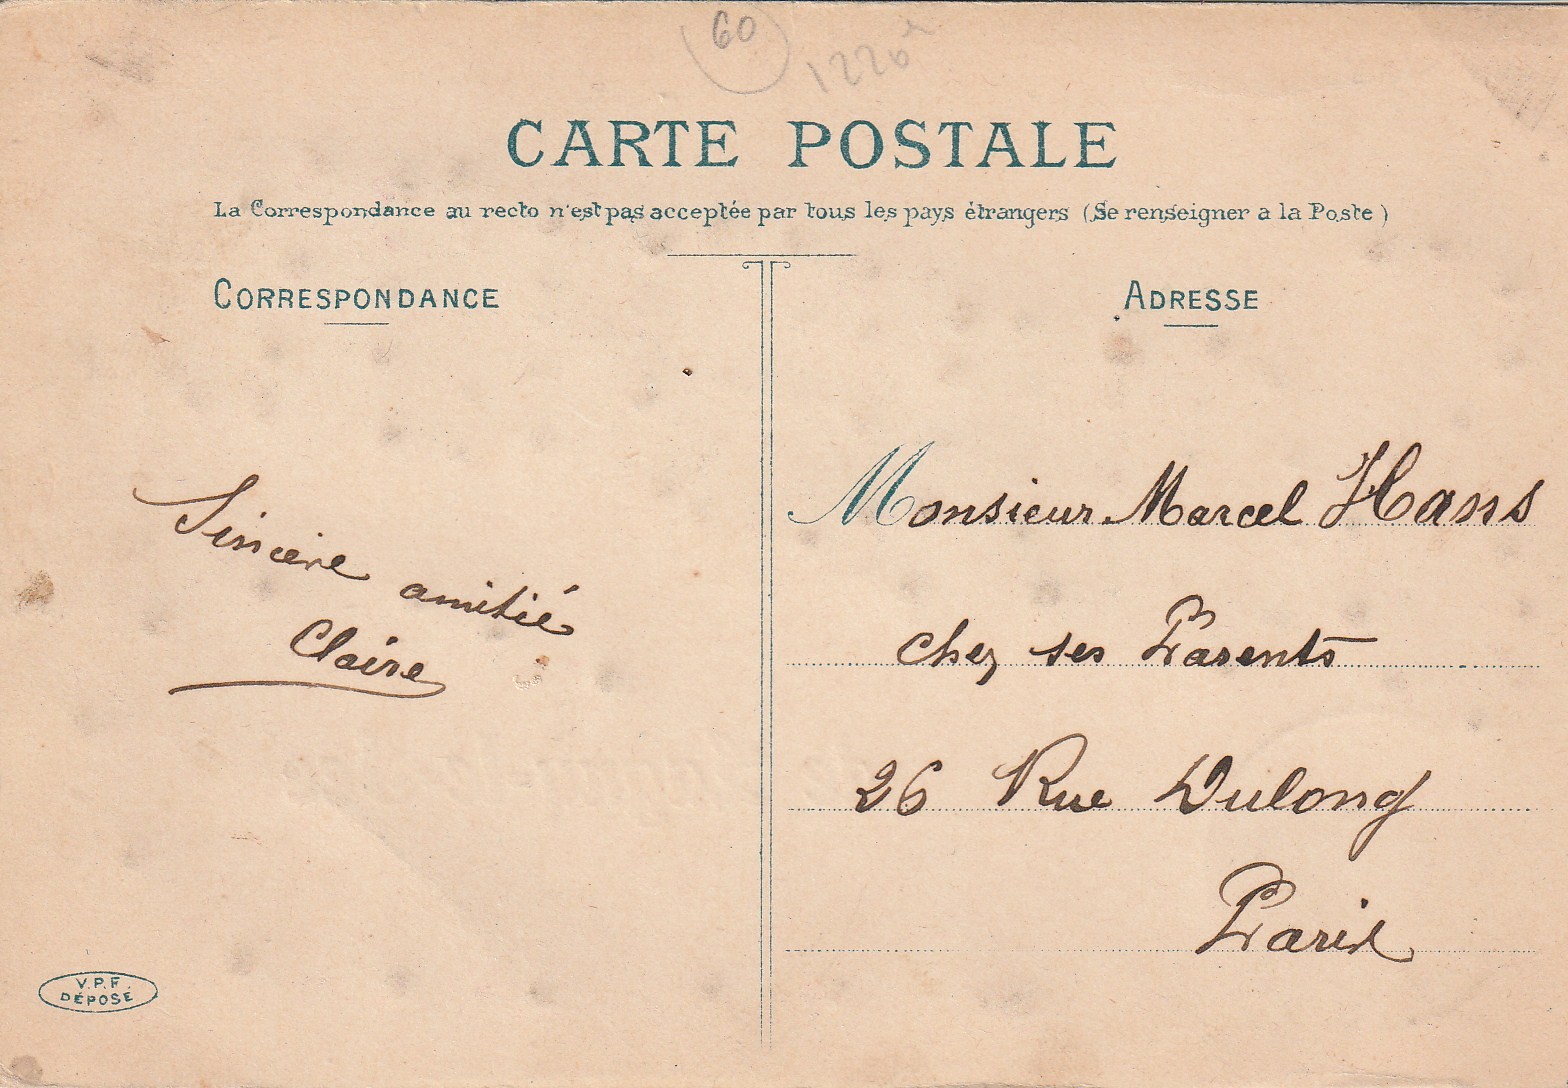 60
1220
CARTE POSTALE
La Correspondance au recto n'est pas acceptée par tous les pays étrangers (Se renseigner a la Poste)
CORRESPONDANCE
Sincère amitié
Claire
V.P.F.
DÉPOSÉ
ADRESSE
Monsieur Marcel Hans
chez ses Parents
26 Rue Dulong
Paris